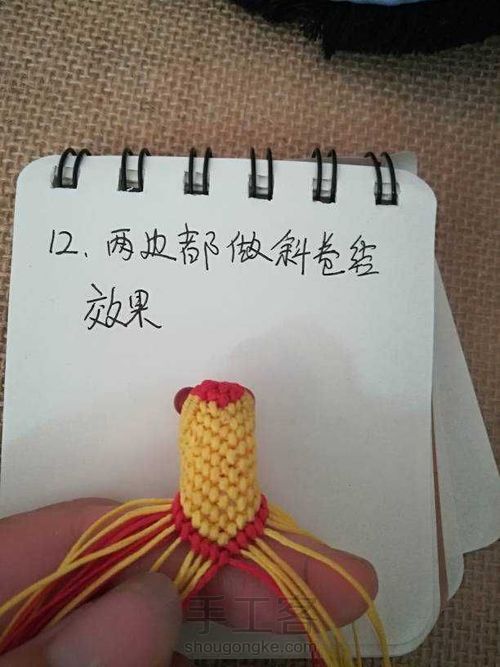 12、两边都做斜卷结
效果
手工客
shougongke.com